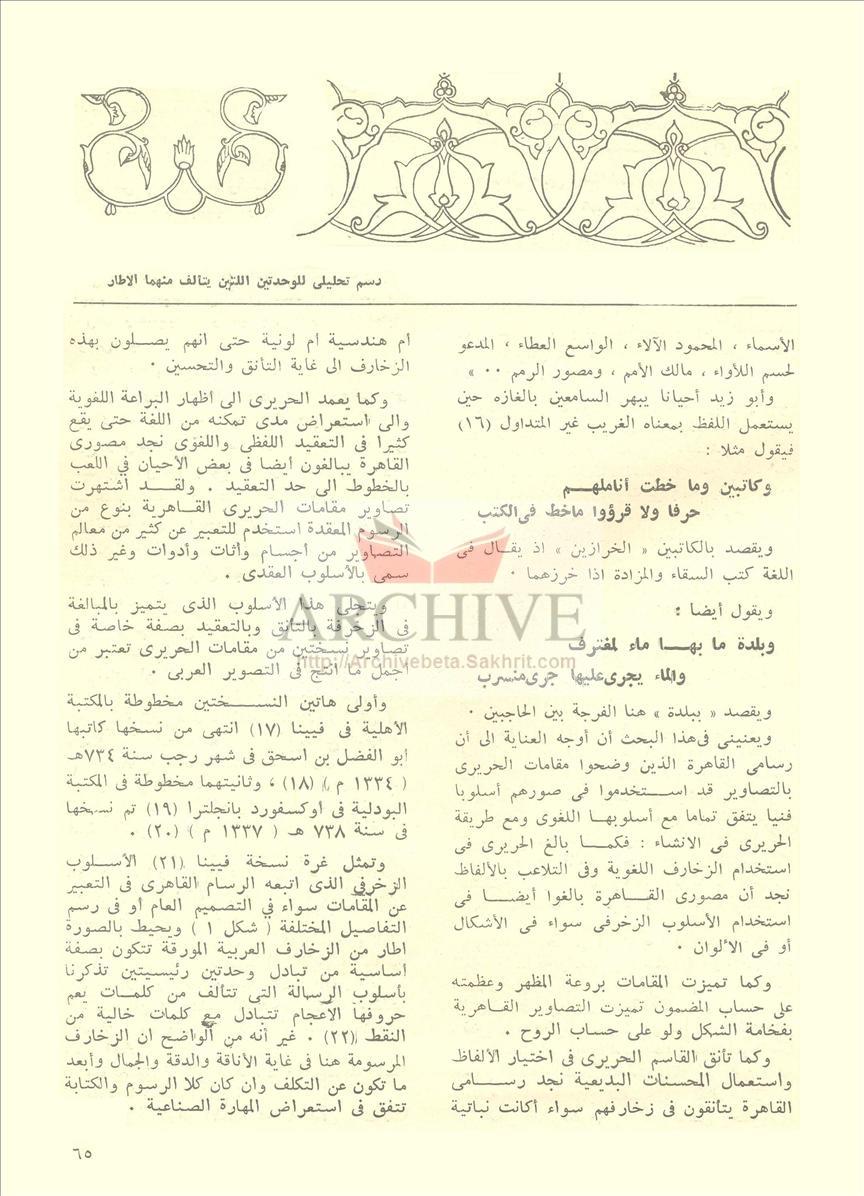 رسم تحليلى للوحدتين اللتين يتألف منهما الاطار
الأسماء ، المحمود الآلاء ، الواسع العطاء ، المدعو
لحسم اللأواء ، مالك الأمم ، ومصور الرمم ٠٠ »
وأبو زيد أحيانا يبهر السامعين بالغازه حين
يستعمل اللفظ بمعناه الغريب غير المتداول (١٦)
فيقول مثلا :
وكاتبين وما خطت أناملهـــم
حرفا ولا قرؤوا ماخط فى الكتب
ويقصد بالكاتبين « الخرازين » اذ يقــال فى
اللغة كتب السقاء والمزادة اذا خرزهما ٠
ويقول أيضا :
وبلدة ما بهـــا ماء لمغترف
والماء يجرى عليها جرى منسرب
ويقصد « ببلدة » هنا الفرجة بين الحاجبين ٠
ويعنينى فى هذا البحث أن أوجه العناية الى أن
رسامى القاهرة الذين وضحوا مقامات الحريرى
بالتصاوير قد اســـتخدموا فى صورهم أسلوبا
فنيا يتفق تماما مع أسلوبهــا اللغوى ومع طريقة
الحريرى فى الانشاء : فكمـــا بالغ الحريرى فى
استخدام الزخارف اللغوية وفى التلاعب بالألفاظ
نجد أن مصورى القــاهرة بالغوا أيضـــا فى
استخدام الأسلوب الزخرفى سواء فى الأشكال
أو فى الألوان ٠
وكما تميزت المقامات بروعة المظهر وعظمته
على حساب المضمون تميزت التصاوير القــاهرية
بفخامة الشكل ولو على حساب الروح ٠
وكما تأنق القاسم الحريرى فى اختيار الألفاظ
واستعمال المحسنات البديعية نجد رســـامى
القاهرة يتأنقون فى زخارفهم سواء أكانت نباتية
أم هندسية أم لونية حتى انهم يصـــلون بهذه
الزخارف الى غاية التأنق والتحسين ٠
وكما يعمد الحريرى الى اظهار البراعة اللغوية
والى استعراض مدى تمكنه من اللغة حتى يقع
كثيرا فى التعقيد اللفظى واللغوى نجد مصورى
القاهرة يبالغون أيضا فى بعض الأحيان في اللعب
بالخطوط الى حد التعقيد . ولقـــد اشتهرت
تصاوير مقامات الحريرى القــاهرية بنوع من
الرسوم المعقدة استخدم للتعبير عن كثير من معالم
التصاوير من أجسام وأثاث وأدوات وغير ذلك
سمى بالأسلوب العقدى .
ويتجلى هذا الأسلوب الذى يتميز بالمبالغة
فى الزخرفة بالتأنق وبالتعقيد بصفة خاصة فى
تصاوير نسختين من مقامات الحريرى تعتبر من
أجمل ما أنتج فى التصوير العربى .
وأولى هاتين النســـختين مخطوطة بالمكتبة
الأهلية فى فيينا (١٧) انتهى من نسخها كاتبها
أبو الفضل بن اسحق فى شهر رجب سنة ٧٣٤هـ
( ١٣٣٤ م ) (١٨) ، وثانيتهما مخطوطة فى المكتبة
البودلية فى أوكسفورد بانجلترا (١٩) تم نسخها
فى سنة ٧٣٨ هـ ( ١٣٣٧ م ) (٢٠) .
وتمثل غرة نسخة فيينا (٢١) الأســـلوب
الزخرفي الذى اتبعه الرسام القاهرى فى التعبير
عن المقامات سواء في التصميم العام أو فى رسم
التفاصيل المختلفة ( شكل ١ ) ويحيط بالصورة
اطار من الزخارف العربية المورقة تتكون بصفة
أساسية من تبادل وحدتين رئيسيتين تذكرنا
بأسلوب الرسالة التى تتألف من كلمـــات يعم
حروفها الأعجام تتبادل مع كلمات خالية من
النقط (٢٢) . غير أنه من الواضح ان الزخارف
المرسومة هنا فى غاية الأناقة والدقة والجمال وأبعد
ما تكون عن التكلف وان كان كلا الرسوم والكتابة
تتفق فى استعراض المهارة الصناعية .
٦٥
ARCHIVE
http://Archivebeta.Sakhrit.com